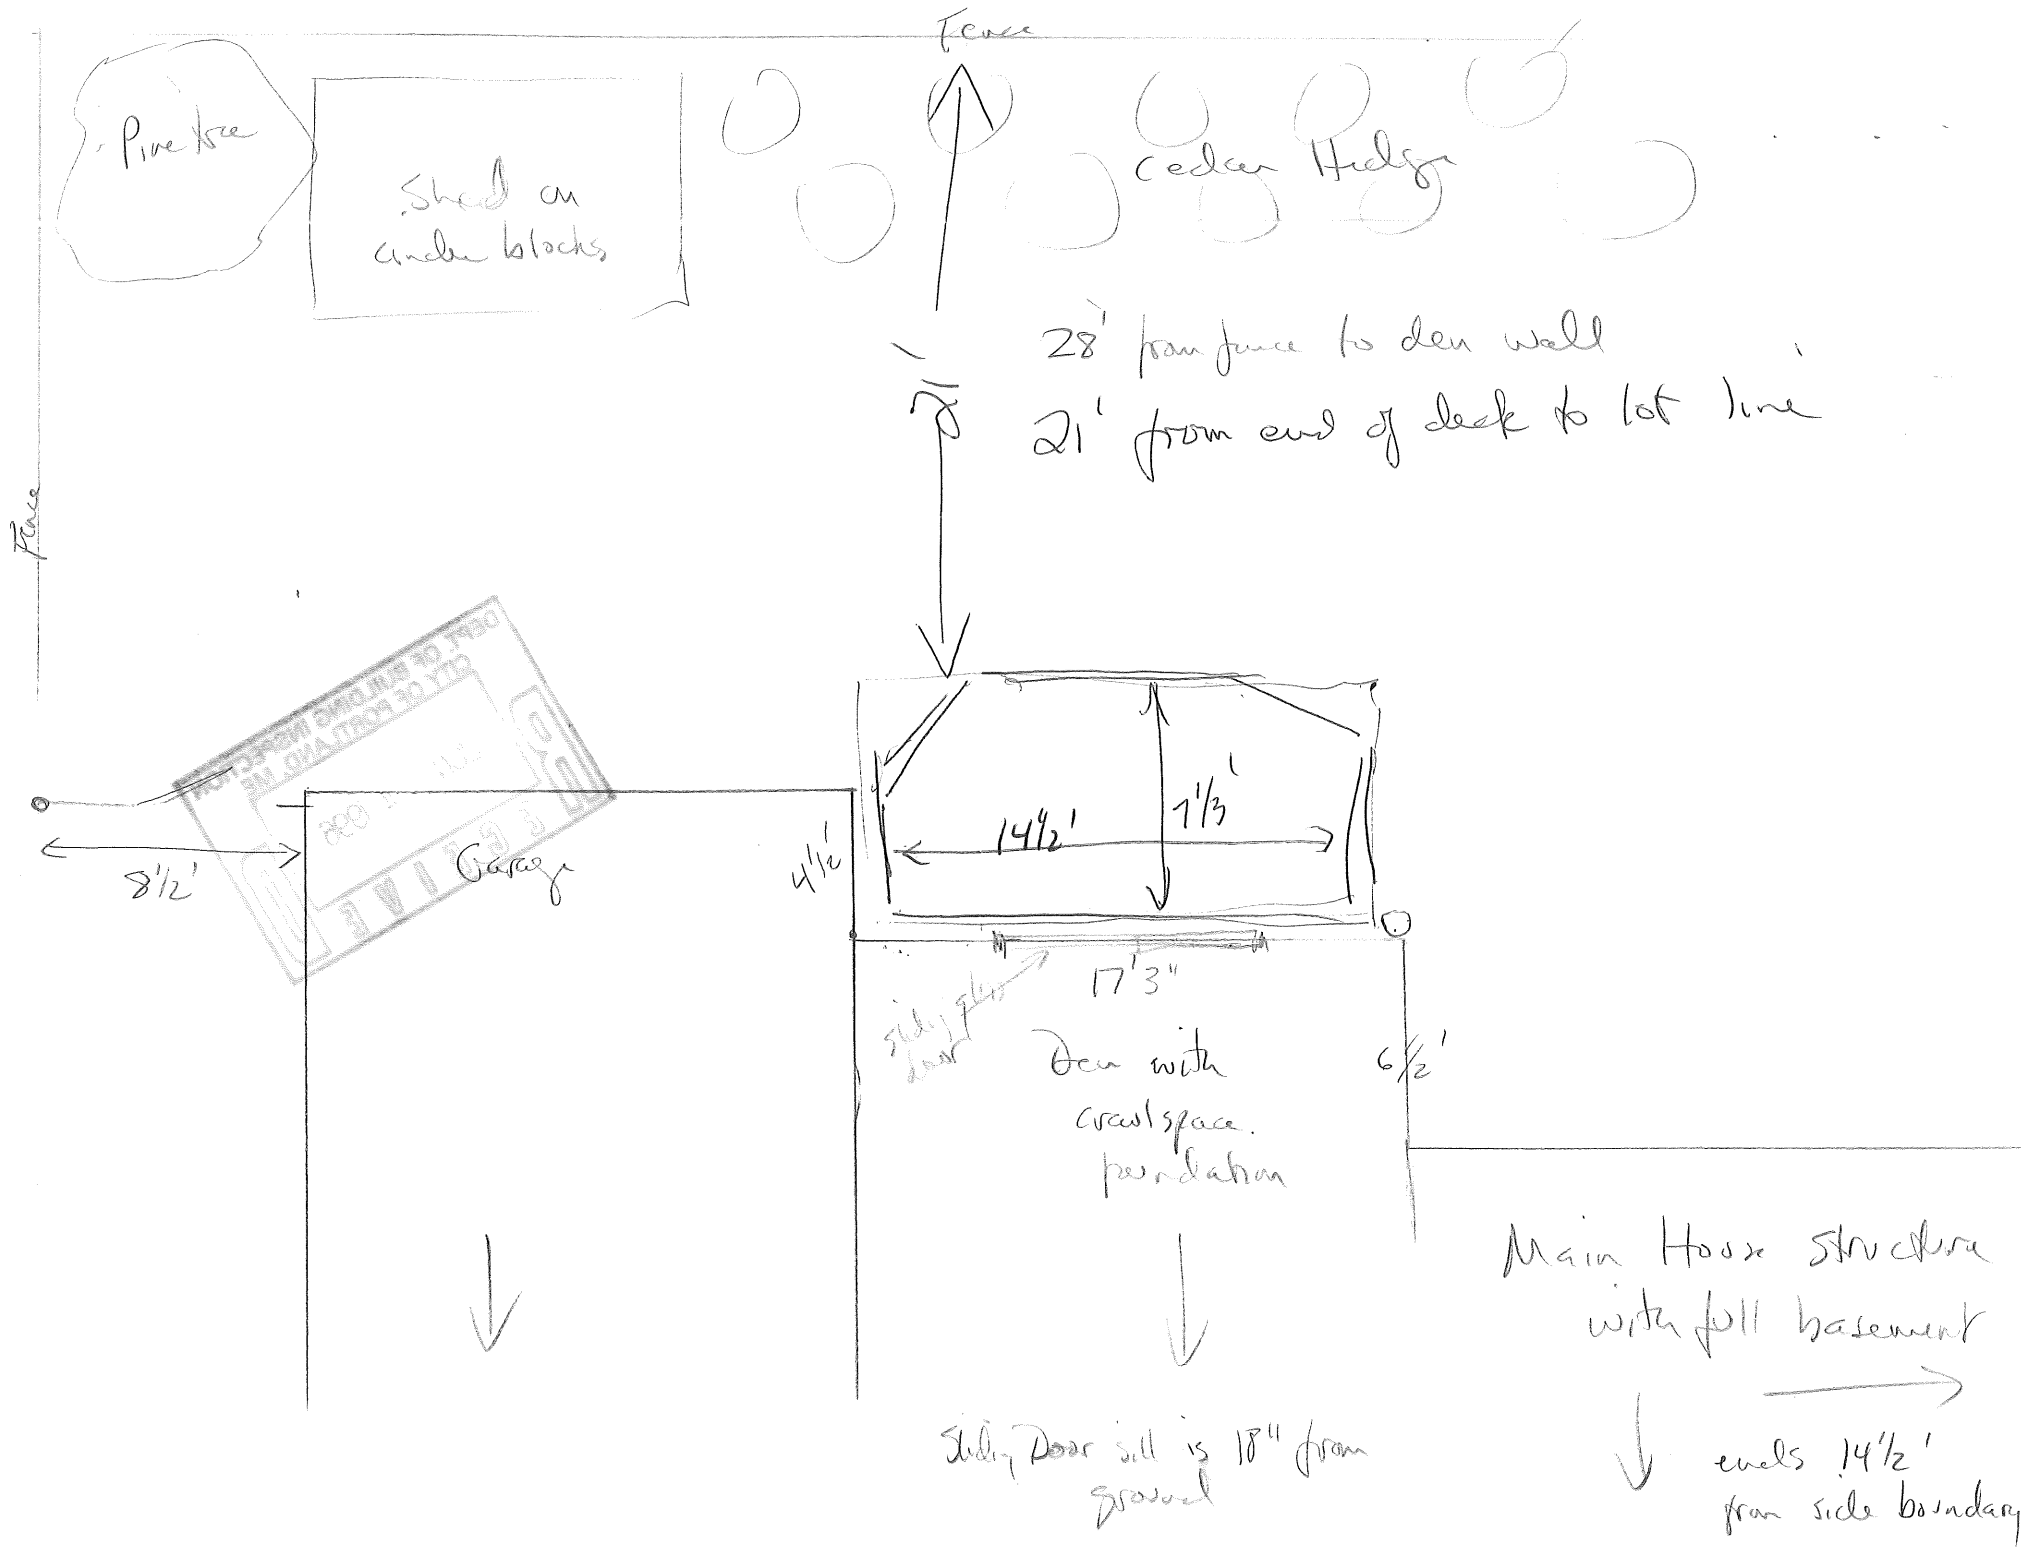 Fence
Pine tree
Shed on
cinder blocks
Cedar Hedge
28' from fence to den wall
21' from end of deck to lot line
21'
Fence
DEPT. OF BUILDING INSPECTION
CITY OF PORTLAND, ME
RECEIVED
8 1/2'
Garage
4 1/2'
14 1/2'
7 1/3'
17'3"
sliding glass
door
Den with
crawlspace.
foundation
6 1/2'
Main House structure
with full basement
Sliding Door sill is 18" from
ground
ends 14 1/2'
from side boundary